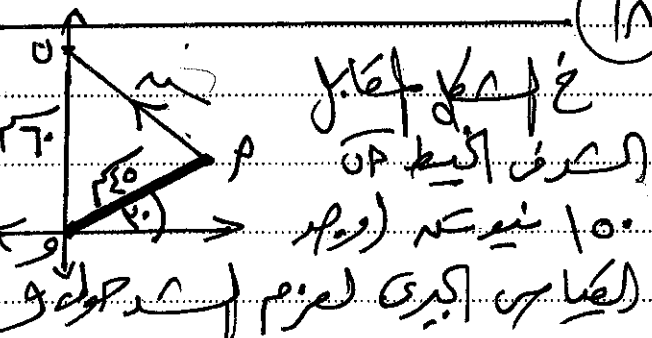 ١٨
فى الشكل المقابل
الشد فى الخيط أب
١٥٠ نيوتن أوجد
القياس الجبرى لعزم الشد حول و
ب
أ
٦٠
٤٥
٣٠
و